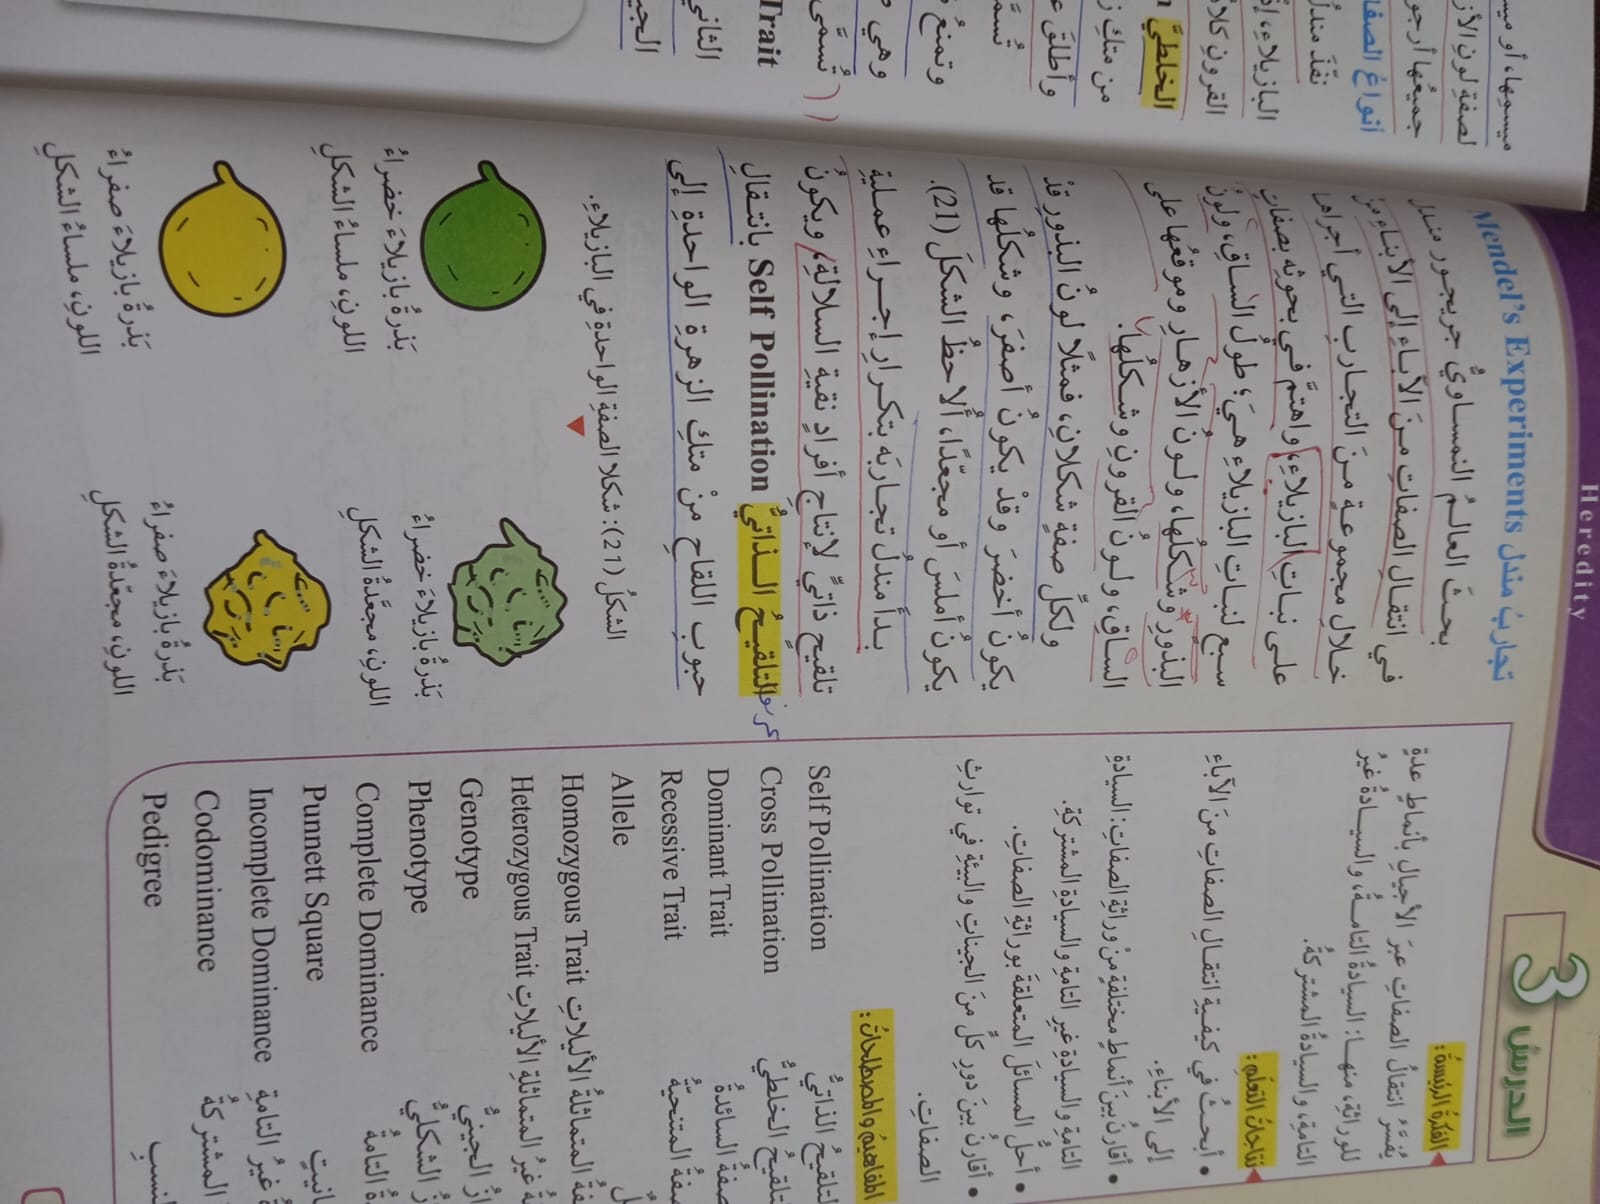 Heredity
الدرسُ 3
الفكرةُ الرئيسةُ:
يُفسَّرُ انتقالُ الصفاتِ عبرَ الأجيالِ بأنماطٍ عدةٍ
للوراثةِ، منها: السيادةُ التامةُ، والسيادةُ غيرُ
التامةِ، والسيادةُ المشتركةُ.
نتاجاتُ التعلُّمِ:
• أبحثُ في كيفيةِ انتقالِ الصفاتِ منَ الآباءِ
إلى الأبناءِ.
• أقارنُ بينَ أنماطٍ مختلفةٍ منْ وراثةِ الصفاتِ: السيادةِ
التامةِ والسيادةِ غيرِ التامةِ والسيادةِ المشتركةِ.
• أحلُّ المسائلَ المتعلقةَ بوراثةِ الصفاتِ.
• أقارنُ بينَ دورِ كلٍّ منَ الجيناتِ والبيئةِ في توارثِ
الصفاتِ.
المفاهيمُ والمصطلحاتُ:
Self Pollination التلقيحُ الذاتيُّ
Cross Pollination التلقيحُ الخلطيُّ
Dominant Trait الصفةُ السائدةُ
Recessive Trait الصفةُ المتنحيةُ
Allele
Homozygous Trait المتماثلةُ الأليلاتِ
Heterozygous Trait غيرُ المتماثلةِ الأليلاتِ
Genotype الجينيُّ
Phenotype الشكليُّ
Complete Dominance التامةُ
Punnett Square
Incomplete Dominance غيرُ التامةِ
Codominance المشتركةُ
Pedigree
تجاربُ مندل Mendel's Experiments
بحثَ العالمُ النمساويُّ جريجور مندل
في انتقالِ الصفاتِ منَ الآباءِ إلى الأبناءِ منْ
خلالِ مجموعةٍ منَ التجاربِ التي أجراها
على نباتِ البازيلاءِ، واهتمَّ في بحوثِه بصفاتٍ
سبعٍ لنباتِ البازيلاءِ هيَ؛ طولُ الساقِ، ولونُ
البذورِ وشكلُها، ولونُ الأزهارِ وموقعُها على
الساقِ، ولونُ القرونِ وشكلُها.
ولكلِّ صفةٍ شكلانِ، فمثلًا لونُ البذورِ قدْ
يكونُ أخضرَ وقدْ يكونُ أصفرَ، وشكلُها قدْ
يكونُ أملسَ أو مجعَّدًا، أُلاحظُ الشكلَ (21).
بدأَ مندلُ تجاربَه بتكرارِ إجراءِ عمليةِ
تلقيحٍ ذاتيٍّ لإنتاجِ أفرادٍ نقيةِ السلالةِ، ويكونُ
التلقيحُ الذاتيُّ Self Pollination بانتقالِ
حبوبِ اللقاحِ منْ متكِ الزهرةِ الواحدةِ إلى
الشكلُ (21): شكلا الصفةِ الواحدةِ في البازيلاءِ.
بَذرةُ بازيلاءَ خضراءُ
اللونِ، ملساءُ الشكلِ
بَذرةُ بازيلاءَ خضراءُ
اللونِ، مجعّدةُ الشكلِ
بَذرةُ بازيلاءَ صفراءُ
اللونِ، ملساءُ الشكلِ
بَذرةُ بازيلاءَ صفراءُ
اللونِ، مجعّدةُ الشكلِ
ميسمِها، أو
لصفةِ لونِ
جميعُها
أنواعُ
نفّذَ مندلُ
البازيلاءِ،
القرونِ
الخلطيَّ
من متكِ
وأطلقَ
تُسمّى
وتمنعُ
وهي
تُسمّى
Trait
الثاني